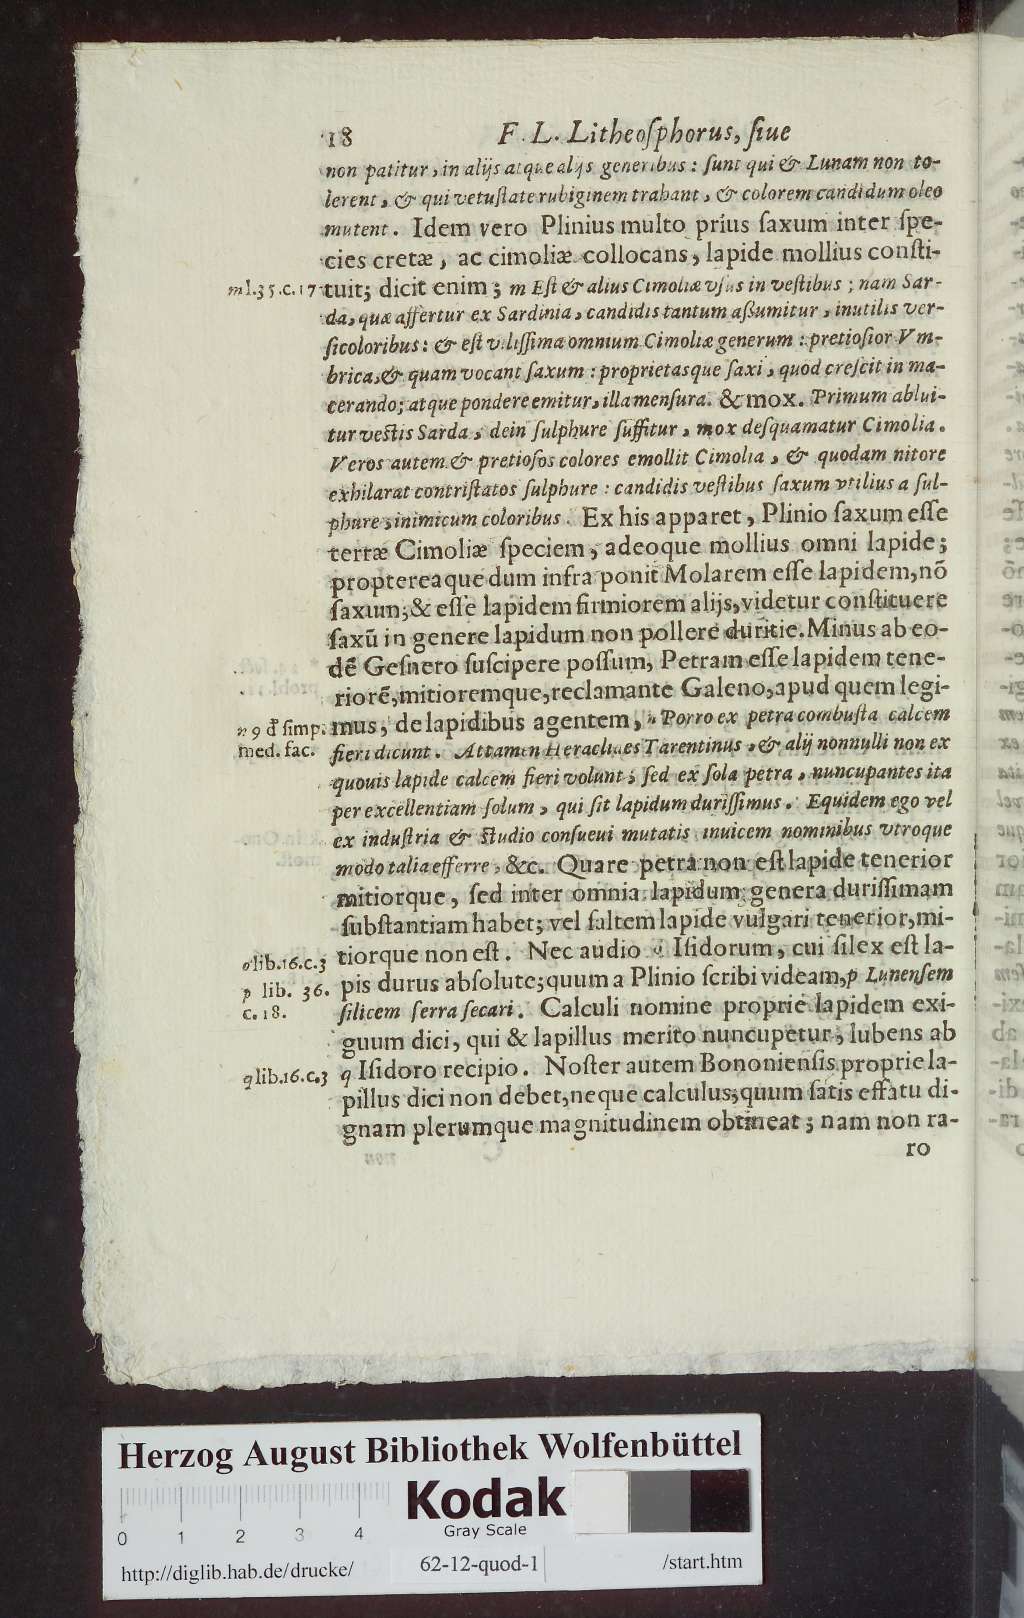 18 F. L. Litheoſphorus, ſiue
non patitur, in alijs atque alijs generibus: ſunt qui & Lunam non to-
lerent, & qui vetuſtate rubiginem trahant, & colorem candidum oleo
mutent. Idem vero Plinius multo prius ſaxum inter ſpe-
cies cretæ, ac cimoliæ collocans, lapide mollius conſti-
m l.35.c.17 tuit; dicit enim; m Eſt & alius Cimoliæ vſus in veſtibus; nam Sar-
da, quæ affertur ex Sardinia, candidis tantum aßumitur, inutilis ver-
ſicoloribus: & eſt viliſſima omnium Cimoliæ generum: pretioſior Vm-
brica, & quam vocant ſaxum: proprietasque ſaxi, quod creſcit in ma-
cerando; atque pondere emitur, illa menſura. & mox. Primum ablui-
tur veſtis Sarda, dein ſulphure ſuffitur, mox deſquamatur Cimolia.
Veros autem & pretioſos colores emollit Cimolia, & quodam nitore
exhilarat contriſtatos ſulphure: candidis veſtibus ſaxum vtilius a ſul-
phure, inimicum coloribus. Ex his apparet, Plinio ſaxum eſſe
terræ Cimoliæ ſpeciem, adeoque mollius omni lapide;
proptereaque dum infra ponit Molarem eſſe lapidem, nō
ſaxum; & eſſe lapidem firmiorem alijs, videtur conſtituere
ſaxū in genere lapidum non pollere duritie. Minus ab eo-
dē Geſnero ſuſcipere poſſum, Petram eſſe lapidem tene-
riorē, mitioremque, reclamante Galeno, apud quem legi-
n 9 đ ſimp. mus, de lapidibus agentem, n Porro ex petra combuſta calcem
med. fac. fieri dicunt. Attamen Heraclides Tarentinus, & alij nonnulli non ex
quouis lapide calcem fieri volunt; ſed ex ſola petra, nuncupantes ita
per excellentiam ſolum, qui ſit lapidum duriſſimus. Equidem ego vel
ex induſtria & ſtudio conſueui mutatis inuicem nominibus vtroque
modo talia efferre, &c. Quare petra non eſt lapide tenerior
mitiorque, ſed inter omnia lapidum genera duriſſimam
ſubſtantiam habet; vel ſaltem lapide vulgari tenerior, mi-
o lib.16.c.3 tiorque non eſt. Nec audio o Iſidorum, cui ſilex eſt la-
p lib. 36. pis durus abſolute; quum a Plinio ſcribi videam, p Lunenſem
c. 18. ſilicem ſerra ſecari. Calculi nomine proprie lapidem exi-
guum dici, qui & lapillus merito nuncupetur, lubens ab
q lib.16.c.3 q Iſidoro recipio. Noſter autem Bononienſis proprie la-
pillus dici non debet, neque calculus; quum ſatis effatu di-
gnam plerumque magnitudinem obtineat; nam non ra-
ro
Herzog August Bibliothek Wolfenbüttel
0 1 2 3 4
Kodak
Gray Scale
http://diglib.hab.de/drucke/ 62-12-quod-1 /start.htm